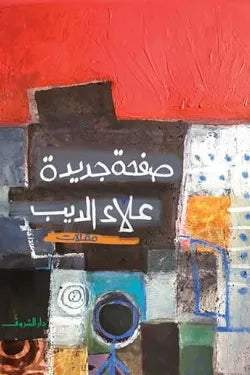 صفحة جديدة
علاء الديب
مقالات
دار الشروق